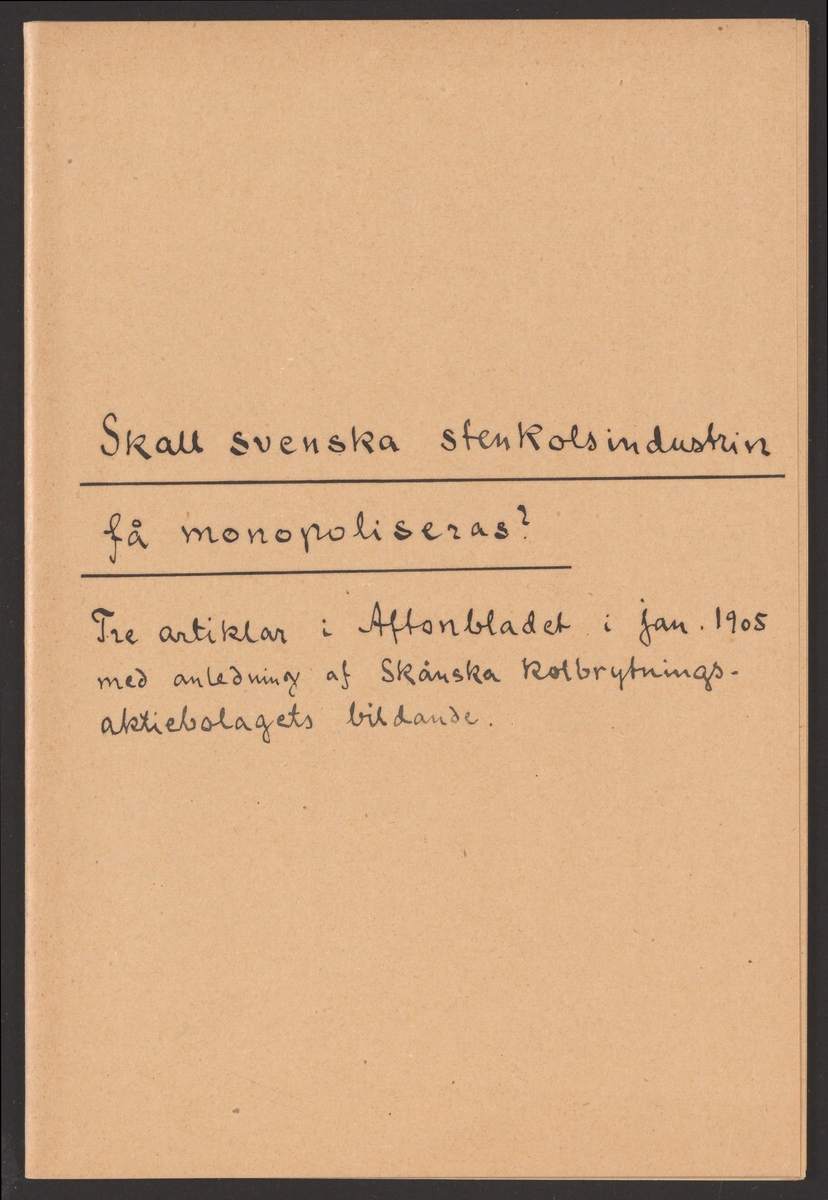 Skall svenska stenkolsindustrin
få monopoliseras?
Tre artiklar i Aftonbladet i jan. 1905
med anledning af Skånska kolbrytnings-
aktiebolagets bildande.